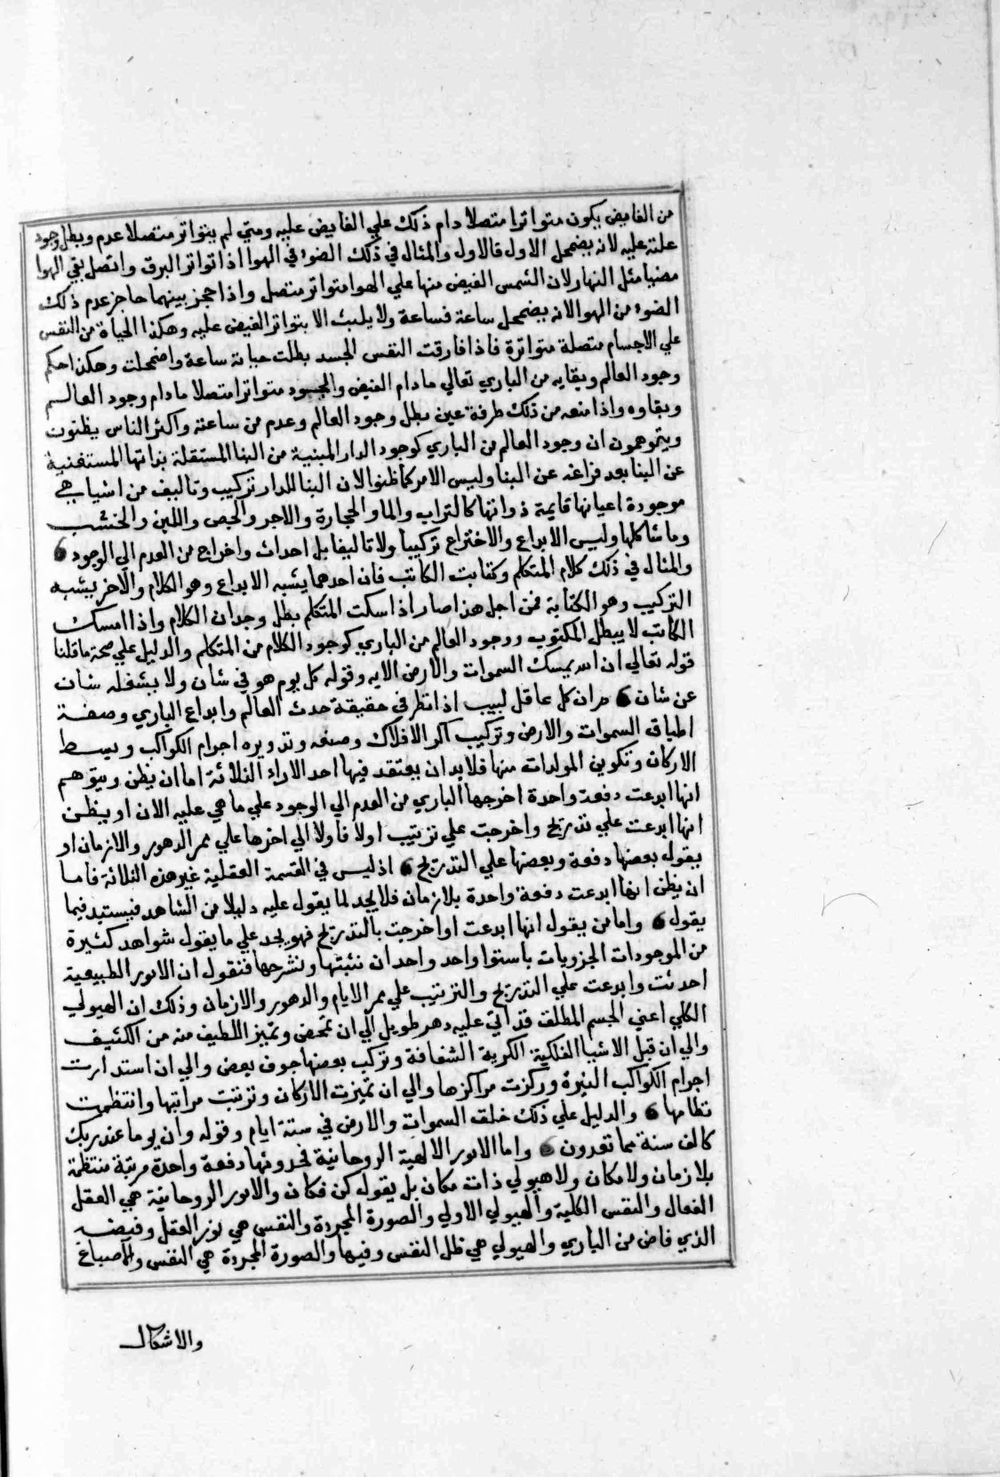 من الفايض يكون متواترا متصلا دام ذلك علي الفايض عليه ومتي لم يتواتر متصلا عدم وبطل وجود
علته عليه لانه يضمحل الاول فالاول والمثال في ذلك الضو في الهوا اذا تواتر البرق واتصل بقي الهوا
مضيا مثل النهار لان الشمس الفيض منها علي الهوا متواتر متصل واذا حجز بينهما حاجز عدم ذلك
الضو من الهوا لانه يضمحل ساعة فساعة ولا يلبث الا بتواتر الفيض عليه وهكذا الحياة من النفس
علي الاجسام متصلة متواترة فاذا فارقت النفس الجسد بطلت حياته ساعة واضمحلت وهكذا حكم
وجود العالم وبقايه من الباري تعالي ما دام الفيض والجود متواترا متصلا ما دام وجود العالم
وبقاوه واذا منعه من ذلك طرفة عين بطل وجود العالم وعدم من ساعته واكثر الناس يظنون
ويتوهمون ان وجود العالم من الباري كوجود الدار المبنية من البنا المستقلة بذاتها المستغنية
عن البنا بعد فراغه عن البنا وليس الامر كما ظنوا لان البنا للدار تركيب وتاليف من اشيا هي
موجودة اعيانها قايمة ذواتها كالتراب والما والحجارة والاجر والجص واللبن والخشب
وما شاكلها وليس الابداع والاختراع تركيبا ولا تاليفا بل احداث واخراج من العدم الي الوجود
والمثال في ذلك كلام المتكلم وكتابت الكاتب فان احدهما يشبه الابداع وهو الكلام والاخر يشبه
التركيب وهو الكتابة فمن اجل هذا صار اذا سكت المتكلم بطل وجدان الكلام واذا امسك
الكاتب لا يبطل المكتوب ووجود العالم من الباري كوجود الكلام من المتكلم والدليل علي صحة ما قلنا
قوله تعالي ان الله يمسك السموات والارض الايه وقوله كل يوم هو في شان ولا يشغله شان
عن شان مران كل عاقل لبيب اذا نظر في حقيقة حدث العالم وابداع الباري وصفة
اطباق السموات والارض وتركيب اكر الافلاك وصنعه وتدويره اجرام الكواكب وبسط
الاركان وتكوين المولدات منها فلا بد ان يعتقد فيها احد الاراء الثلاثة اما ان يظن ويتوهم
انها ابدعت دفعة واحدة اخرجها الباري من العدم الي الوجود علي ما هي عليه الان او يظن
انها ابدعت علي تدريج واخرجت علي ترتيب اولا فاولا الي اخرها علي ممر الدهور والازمان او
يقول بعضها دفعة وبعضها علي التدريج اذ ليس في القسمة العقلية غير هذه الثلاثة فاما
ان يظن انها ابدعت دفعة واحدة بلا زمان فلا يجد لما يقول عليه دليلا من الشاهد فيستبد فيما
يقول واما من يقول انها ابدعت او اخرجت بالتدريج فهو يجد علي ما يقول شواهد كثيرة
من الموجودات الجزويات باستوا واحد واحد ان نثبتها ونشرحها فنقول ان الامور الطبيعية
احدثت وابدعت علي التدريج والترتيب علي ممر الايام والدهور والازمان وذلك ان الهيولي
الكلي اعني الجسم المطلق قد اتي عليه دهر طويل الي ان تمخض وتميز اللطيف منه من الكثيف
والي ان قبل الاشيا الفلكية الكرية الشفافة وتركب بعضها جوف بعض والي ان استدارت
اجرام الكواكب النيرة وركزت مراكزها والي ان تميزت الاركان وترتبت مراتبها وانتظمت
نظامها والدليل علي ذلك خلق السموات والارض في ستة ايام وقوله وان يوما عند ربك
كالف سنة مما تعدون واما الامور الالهية الروحانية فحدوثها دفعة واحدة مرتبة منتظمة
بلا زمان ولا مكان ولا هيولي ذات مكان بل يقول كن فكان والامور الروحانية هي العقل
الفعال والنفس الكلية والهيولي الاولي والصورة المجردة والنفس هي نور العقل وفيضه
الذي فاض من الباري والهيولي هي ظل النفس وفيها والصورة المجردة هي النفس والاصباغ
والاشكال